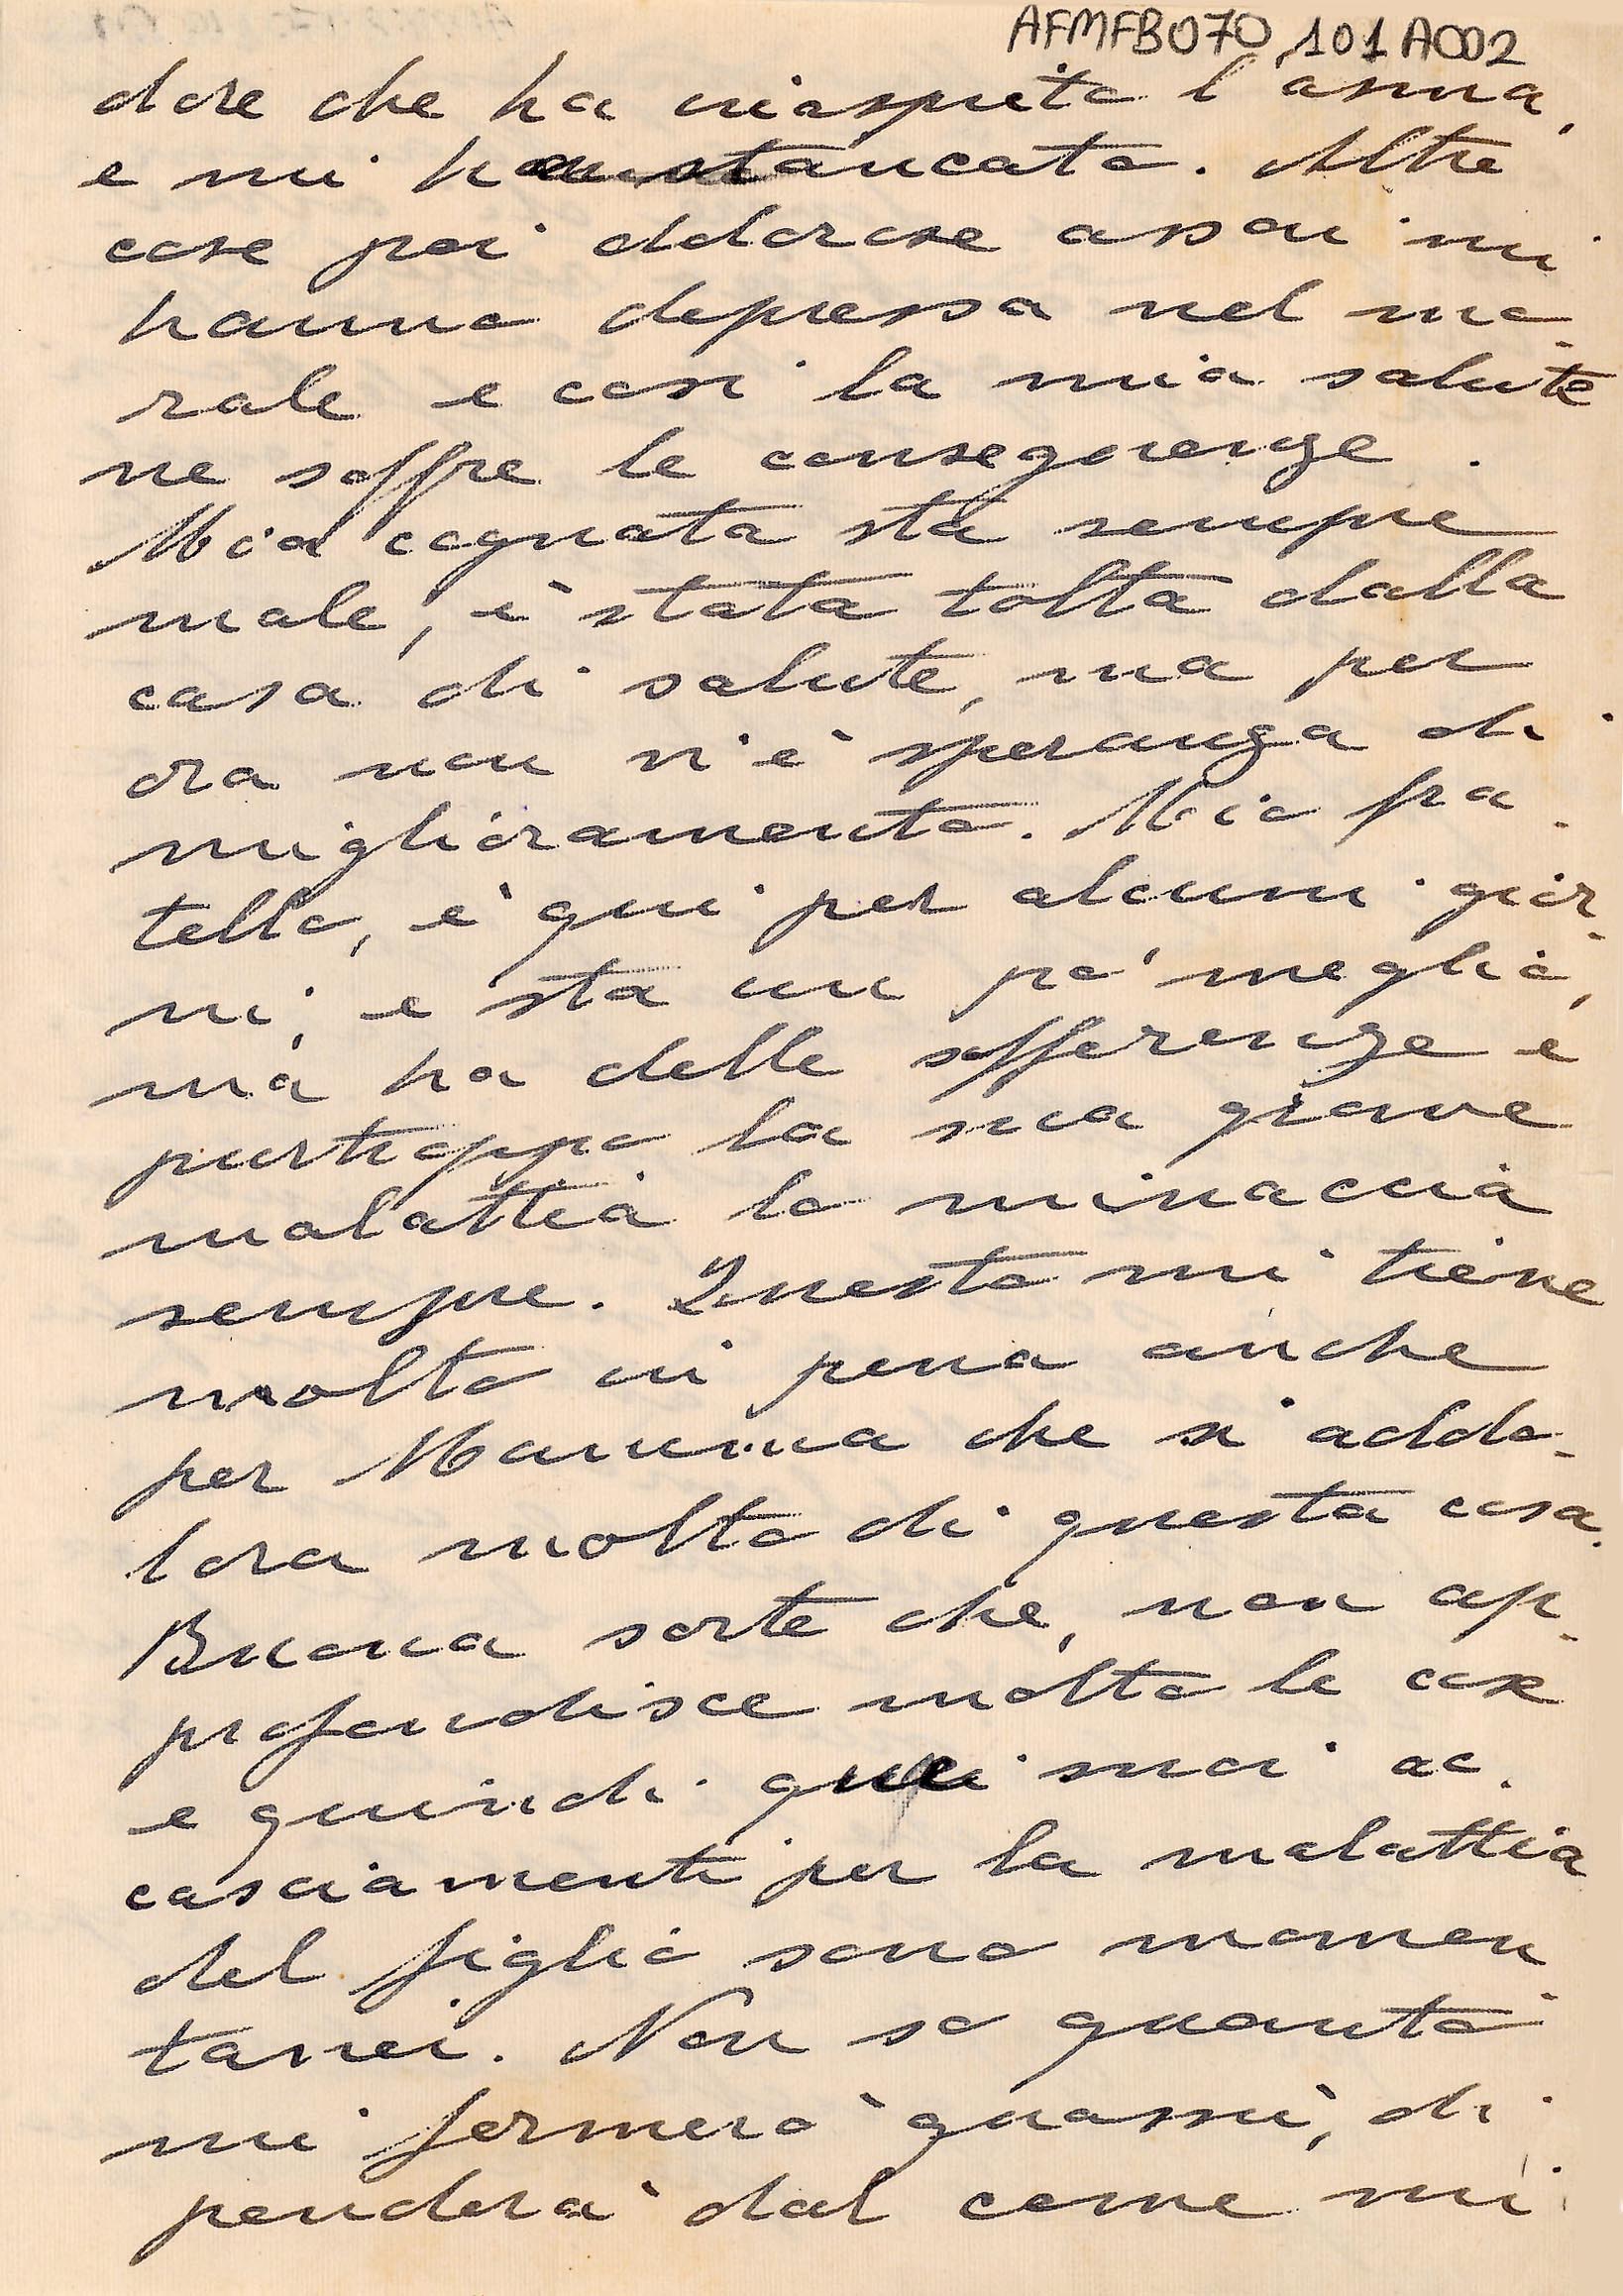 AFMFB070 101A002
dore che ha inasprito l'asma,
e mi ha stancato. Altre
cose poi dolorose assai mi
hanno depressa nel mo-
rale e così la mia salute
ne soffre le conseguenze.
Mia cognata sta sempre
male, è stata tolta dalla
casa di salute, ma per
ora non v'è speranza di
miglioramento. Mio fra-
tello, è qui per alcuni gior-
ni, e sta un po' meglio,
ma ha delle sofferenze e
purtroppo la sua grave
malattia lo minaccia
sempre. Questo mi tiene
molto in pena anche
per Mamma che si addo-
lora molto di questa cosa.
Buona sorte che, non ap-
profondisce molto le cose
e quindi i suoi ac-
casciamenti per la malattia
del figlio sono momen
tanei. Non so quanto
mi fermerò quassù, di-
penderà dal come mi